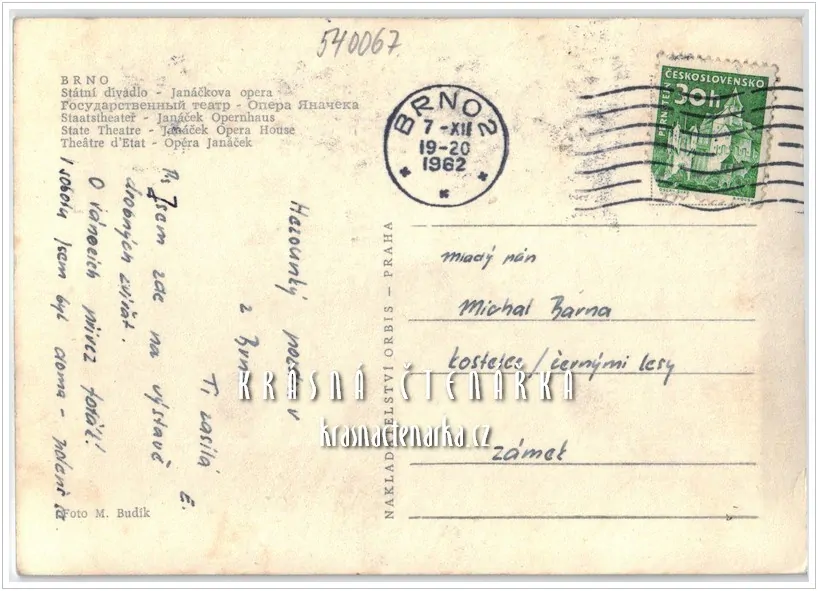 540067
BRNO
Státní divadlo - Janáčkova opera
Государственный театр - Опера Яначека
Staatstheater - Janáček Opernhaus
State Theatre - Janáček Opera House
Théâtre d'Etat - Opéra Janáček
BRNO 2
7 -XII
19-20
1962
ČESKOSLOVENSKO
30 h
PERNŠTEJN
Hezounký
z Brna
Ti zasílá
E.
Jsem zde na výstavě
drobných zvířat.
O vánocích přivez foťák!
V sobotu jsem byl doma -
mladý pán
Michal Bárna
Kostelec / černými lesy
zámek
NAKLADATELSTVÍ ORBIS - PRAHA
Foto M. Budík
KRÁSNÁ ČTENÁRKA
krasnactenarka.cz